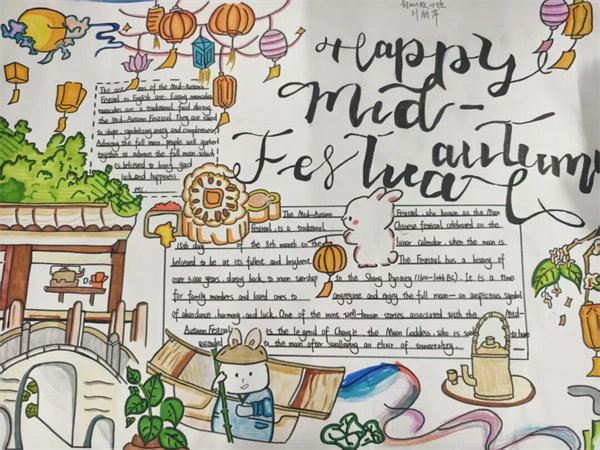 Happy
Mid-
autumn
Festival
The
of the Mid-Autumn
Festival in English are: Eating mooncakes
mooncakes are a traditional food during
the Mid-Autumn Festival. They are round
in shape, symbolizing unity and completeness
Admiring the full moon: people will gather
together to admire the full moon, which
is believed to bring good
luck and happiness
etc.
The Mid-Autumn Festival, also known as the Moon
Festival, is a traditional Chinese festival celebrated on the
15th day of the 8th month in the lunar calendar, when the moon is
believed to be at its fullest and brightest. The Festival has a history of
over 3,000 years, dating back to moon worship in the Shang Dynasty (1600-1046 BC). It is a time
for family members and loved ones to congregate and enjoy the full moon — an auspicious symbol
of abundance, harmony, and luck. One of the most well-known stories associated with the Mid-
Autumn Festival is the legend of Chang'e, the Moon Goddess, who is said to have
ascended to the moon after swallowing an elixir of immortality.